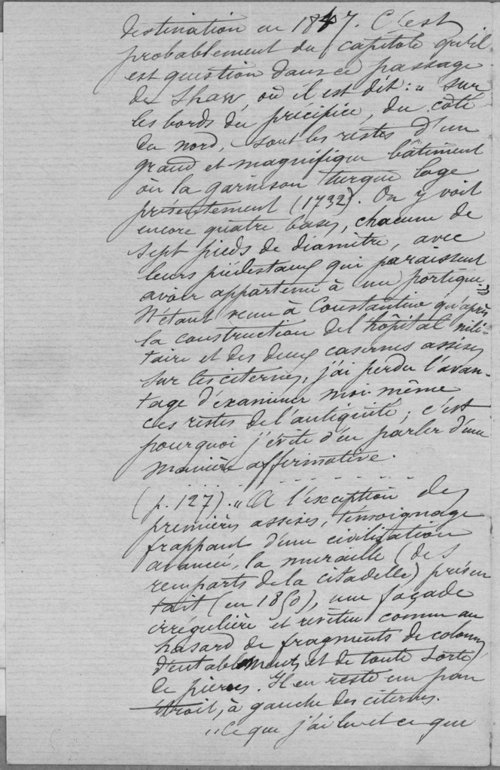 destination en 1847. C'est
probablement du capitole qu'il
est question dans ce passage
de Shaw, où il est dit: „ sur
les bords du précipice, du côté
du nord, sont les restes d'un
grand et magnifique bâtiment
où la garnison turque loge
présentement (1732). On y voit
encore quatre bases, chacune de
sept pieds de diamètre, avec
leurs piédestaux qui paraissent
avoir appartenu à un portique. „
N'étant venu à Constantine qu'après
la construction de l'hôpital mili-
taire et des deux casernes assises
sur les citernes, j'ai perdu l'avan-
tage d'examiner moi-même
ces restes de l'antiquité; c'est
pourquoi j'évite d'en parler d'une
manière affirmative.
. . . . . . . . . . . . . . .
(p. 127). „ A l'exception des
premières assises, témoignage
frappant d'une civilisation
avancée, la muraille (des
remparts de la citadelle) présen
tait (en 1850), une façade
irrégulière et revêtue comme au
hasard de fragments de colonnes,
d'entablements et de toute sorte
de pierres. Il en reste un pan
étroit, à gauche des citernes.
„ Ce que j'ai lu et ce que